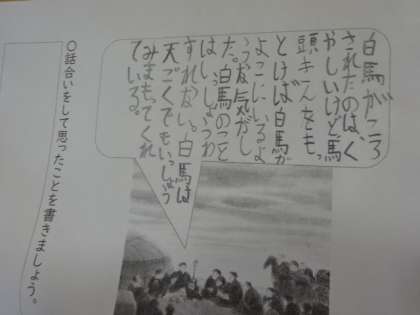 白馬がころ
されたのは、く
やしいけど馬
頭きんをも。
とけば白馬が
よこにいるよ
うな気がし
た。白馬のこと
はいっしょうわ
すれない。白馬は
天ごくでもいっしょう
みまもってくれ
ている。
〇話合いをして思ったことを書きましょう。